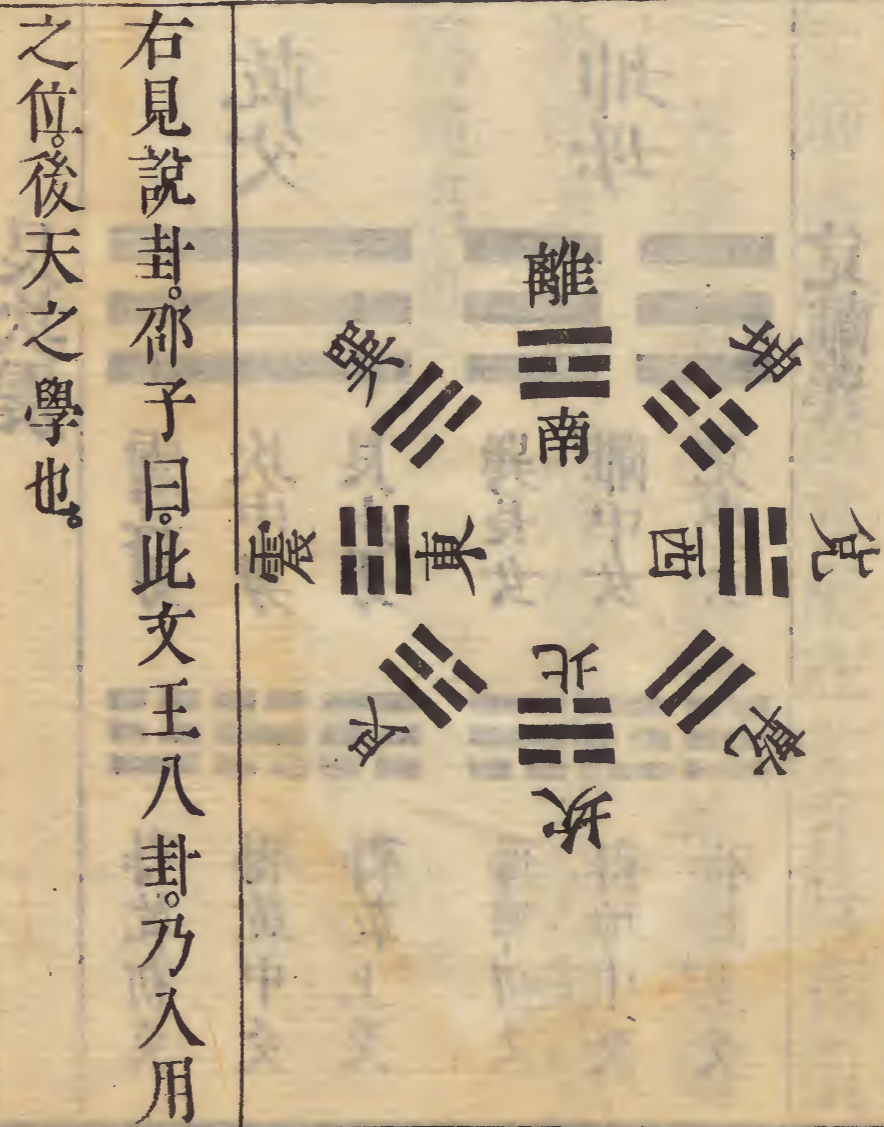 離
南
坤
兌
西
乾
坎
北
艮
震
東
巽
右見說卦。邵子曰。此文王八卦。乃入用
之位。後天之學也。